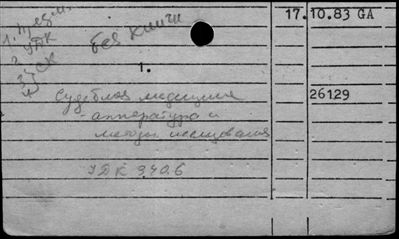 17.10.83 GA
1. Предм.
2 УДК
3 СК
без книги
1.
Судебная медицина
26129
- аппаратура и
методы исследования
УДК 340.6